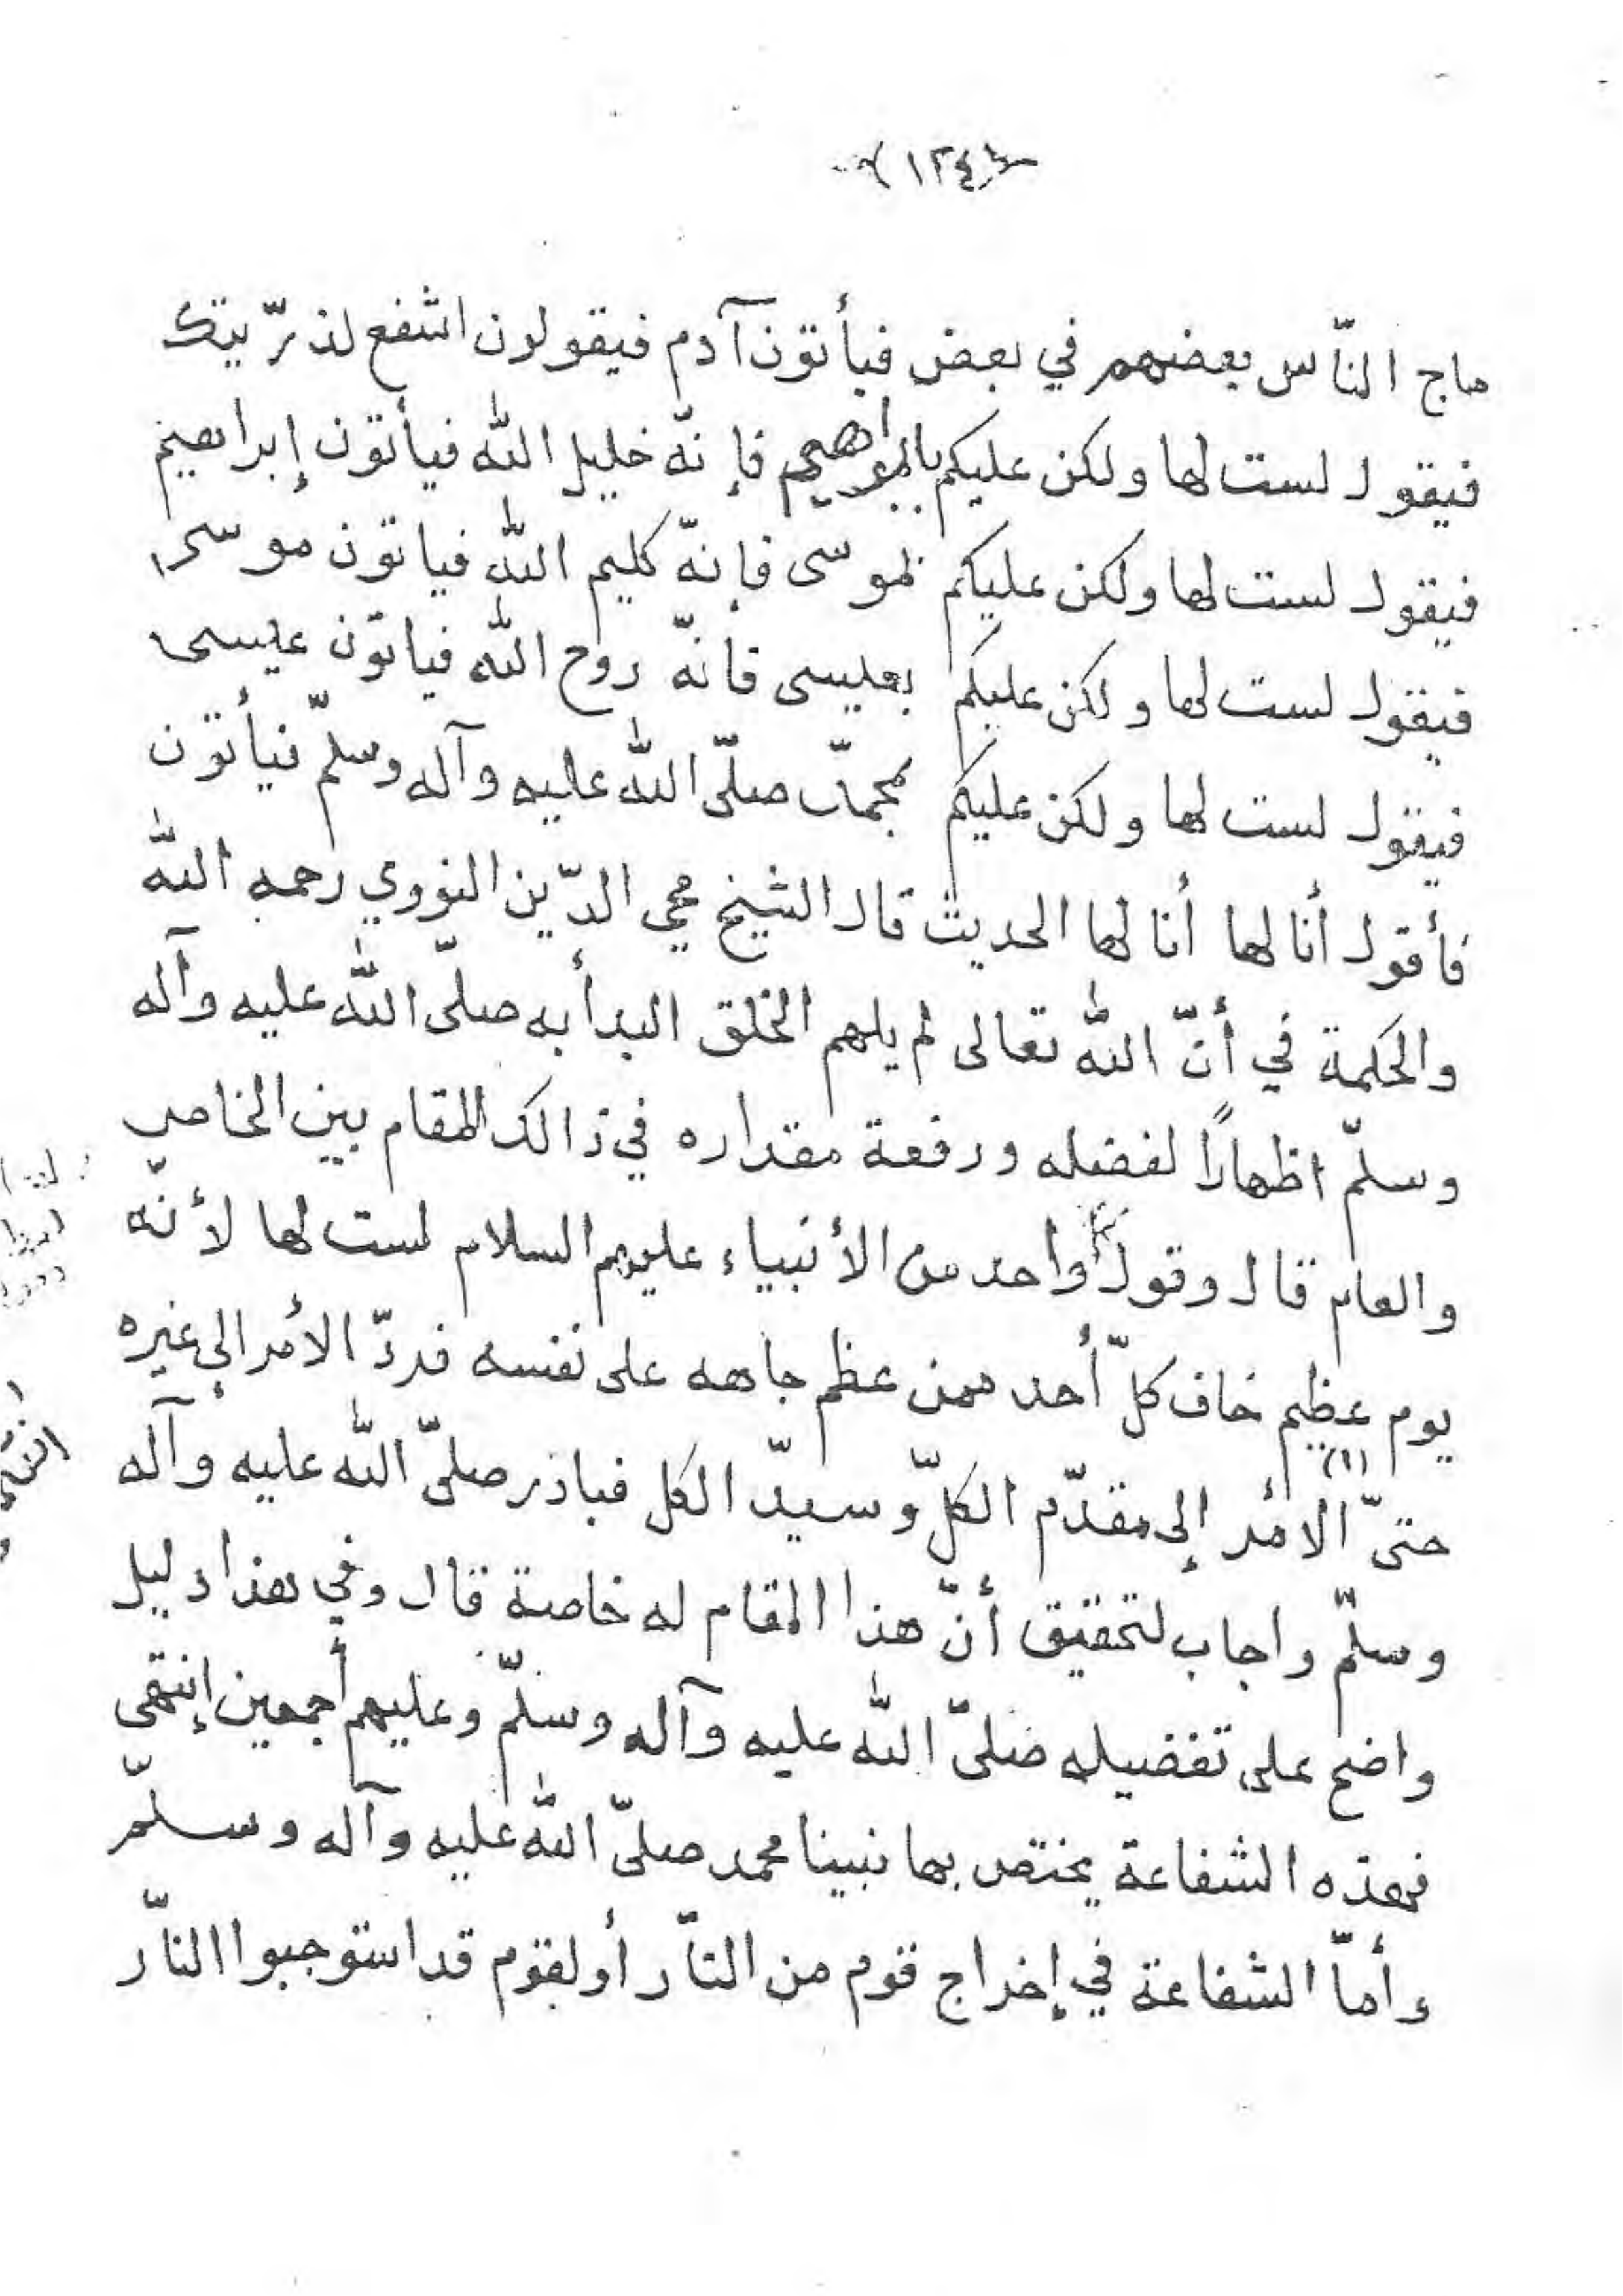 (١٢٤)
ماج النّاس بعضهم في بعض فيأتون آدم فيقولون اشفع لذرّيتك
فيقول لست لها ولكن عليكم بابراهيم فإنّه خليل الله فيأتون إبراهيم
فيقول لست لها ولكن عليكم بموسى فإنّه كليم الله فياتون موسى
فيقول لست لها ولكن عليكم بعيسى فانّه روح الله فياتون عيسى
فيقول لست لها ولكن عليكم بمحمّد صلّى الله عليه وآله وسلّم فيأتون
فأقول أنا لها أنا لها الحديث قال الشيخ محي الدّين النووي رحمه الله
والحكمة في أنّ الله تعالى لم يلهم الخلق البدأ به صلّى الله عليه وآله
وسلّم اظهارًا لفضله ورفعة مقداره في ذالك المقام بين الخاص
والعام قال وقول كل واحد من الأنبياء عليهم السلام لست لها لأنّه
يوم عظيم خاف كلّ أحد ممن عظم جاهه على نفسه فردّ الأمر إلى غيره
حتىّ (١) الأمر إلى مقدّم الكلّ وسيدّ الكل فبادر صلّى الله عليه وآله
وسلّم واجاب لتحقيق أنّ هذا المقام له خاصة قال وفي هذا دليل
واضح على تفضيله صلىّ الله عليه وآله وسلّم وعليهم أجمعين إنتهى
فهذه الشفاعة يختص بها نبينا محمد صلىّ الله عليه وآله وسلّم
وأمّا الشفاعة في إخراج قوم من النّار أو لقوم قد استوجبوا النّار